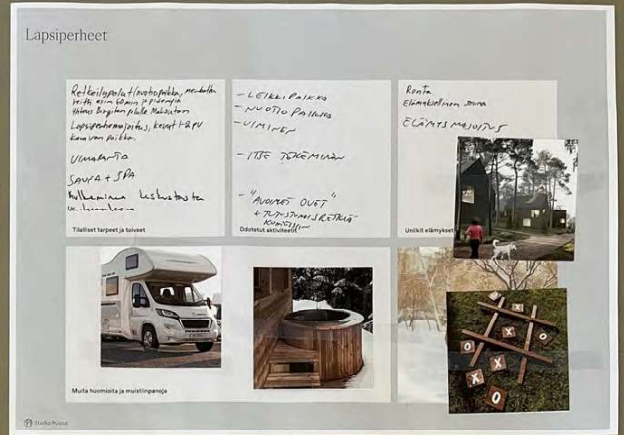 Lapsiperheet
Retkeilypolut (nuotiopaikka,
reitti esim 60min ja pidempiä
Yhteys Birgitan polulle
Lapsiperhemajoitus, kevyt
Karavan paikka.
UIMARANTA
SAUNA + SPA
Kulkeminen keskustasta
Tilalliset tarpeet ja toiveet
- LEIKKIPAIKKA
- NUOTIO PAIKKA
- UIMINEN
- ITSE TEKEMINEN
- "AVOIMET OVET"
+ TUTUSTUMISRETKIÄ
Odotetut aktiviteetit
Ranta
Elämyksellinen sauna
ELÄMYSMAJOITUS
Uniikit elämykset
Muita huomioita ja muistiinpanoja
X
O
X
O
X
X
X
O
Studio Puisto